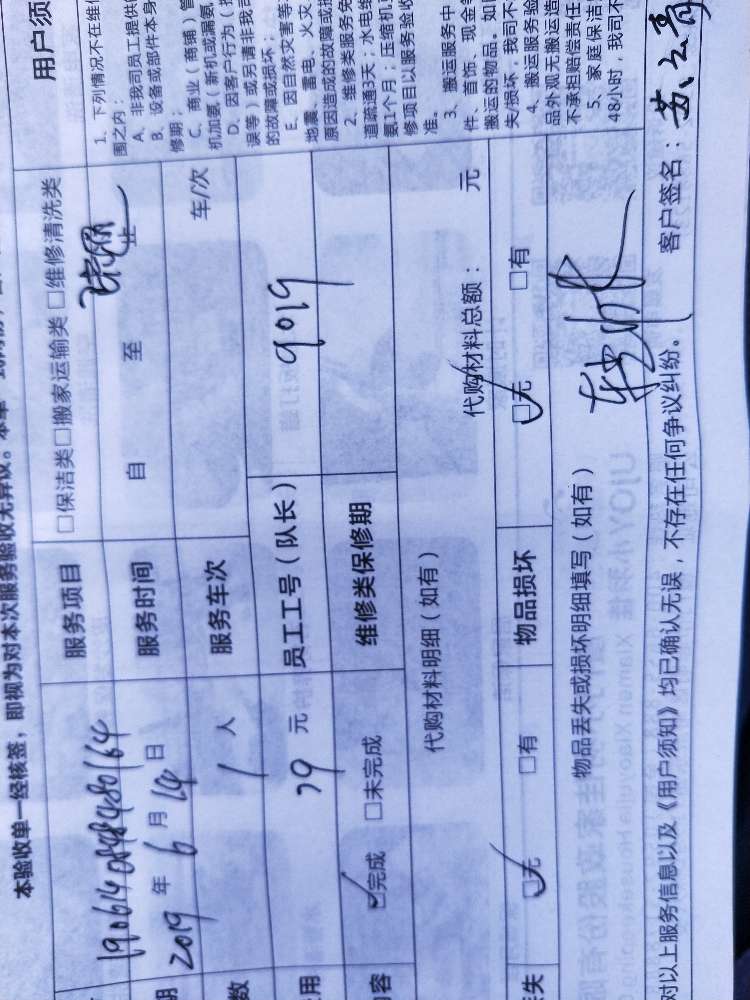 本验收单一经核签，即视为对本次服务验收无异议。
190614084848480164
服务项目
□保洁类□搬家运输类 □维修清洗类
期 2019年6月14日
服务时间
自 至 止
数 1 人
服务车次
车/次
用 79 元
员工工号（队长）
9019
内容 ☑完成 □未完成
维修类保修期
代购材料明细（如有）
代购材料总额： 元
丢失 ☑无 □有
物品损坏
☑无 □有
物品丢失或损坏明细填写（如有）
对以上服务信息以及《用户须知》均已确认无误，不存在任何争议纠纷。 客户签名：
用户须
1、下列情况不在维
围之内：
A、非我司员工提供
B、设备或部件本身
修期；
C、商业（商铺）管
机加氨（新机或漏氨
D、因客户行为（扌
误等）或另请非我司
的故障或损坏；
E、因自然灾害等
地震、雷电、火灾
原因造成的故障或损
2、维修类服务免
道疏通3天；水电维
氨1个月；压缩机
修项目以服务验收
准。
3、搬运服务中
件、首饰、现金等
搬运的物品。如
失/损坏，我司不
4、搬运服务验
品外观无搬运造
不承担赔偿责任
5、家庭保洁
48小时，我司不